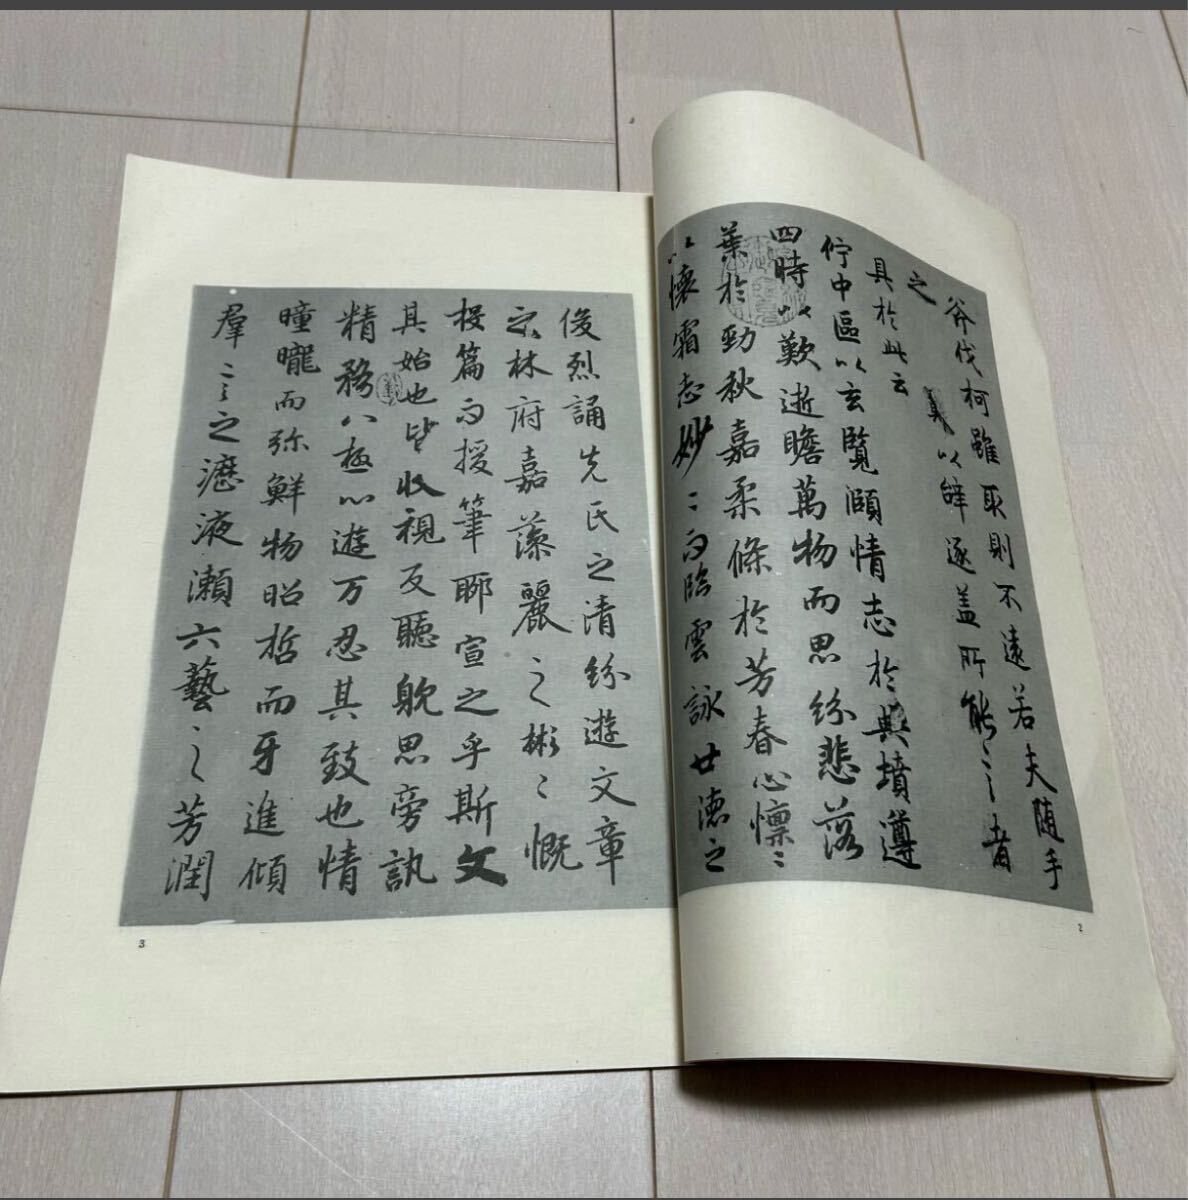 斧伐柯雖取則不遠若夫随手
之
以辞逐盖所能之者
具於此云
佇中區以玄覽頤情志於典墳遵
四時以歎逝瞻萬物而思紛悲落
葉於勁秋嘉柔條於芳春心懍〻
以懷霜志妙〻而臨雲詠廿德之
2
俊烈誦先氏之清紛遊文章
之林府嘉藻麗之彬〻慨
投篇而授筆聊宣之乎斯文
其始也皆收視反聽躭思旁訊
精務八極心遊万忍其致也情
曈曨而弥鮮物昭晢而牙進傾
羣言之瀝液濑六藝之芳潤
3